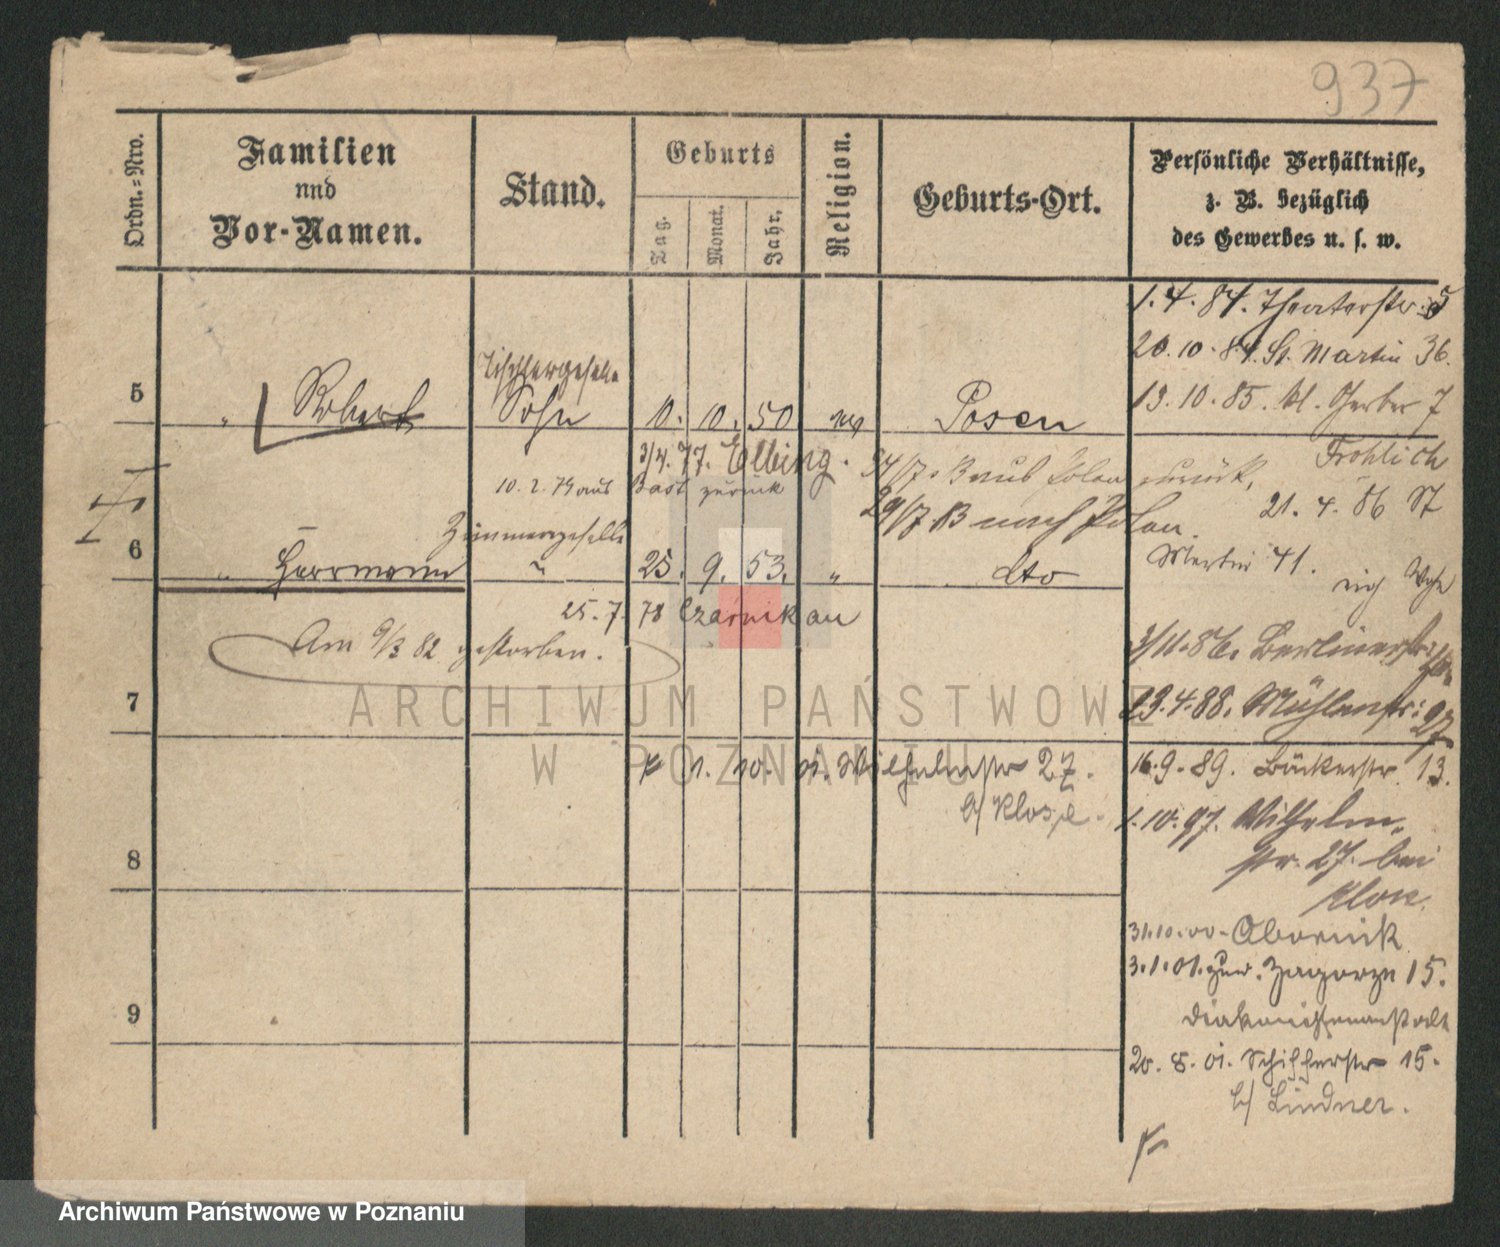 937
Ordn.=Nro.
Familien
und
Vor-Namen.
Stand.
Geburts
Tag.
Monat.
Jahr.
Religion.
Geburts-Ort.
Persönliche Verhältnisse,
z. B. bezüglich
des Gewerbes u. s. w.
1. 4. 84. Theaterstr. 5
20. 10. 84. St. Martin 36.
13. 10. 85. kl. Gerber 7
Fröhlich
5
" Robert
Tischlergeselle
Sohn
10. 10. 50
Posen
3/4. 77. Elbing.
10. 2. 79 aus zurück
24/7. B aus Polen zurück,
29/7 B nach Polen.
21. 4. 86 St
Martin 41.
6
" Herrmann
Zimmergeselle
"
25. 9. 53.
"
dto
25. 7. 78 Czarnikau
Am 9/3 82 gestorben.
3/11. 86. Berlinerstr.
7
19. 4. 88. Mühlenstr. 27
1. 10. 01. Wilhelmstr 27.
b/ Klose.
16. 9. 89. Bäckerstr. 13.
1. 10. 97. Wilhelm-
str. 27. bei
Klose.
8
31. 10. 00. Obornik
3. 1. 01. zur. Zagorze 15.
Diakonissenanstalt
9
20. 8. 01. Schifferstr 15.
b/ Lindner.
ARCHIWUM PAŃSTWOWE
W POZNANIU
Archiwum Państwowe w Poznaniu